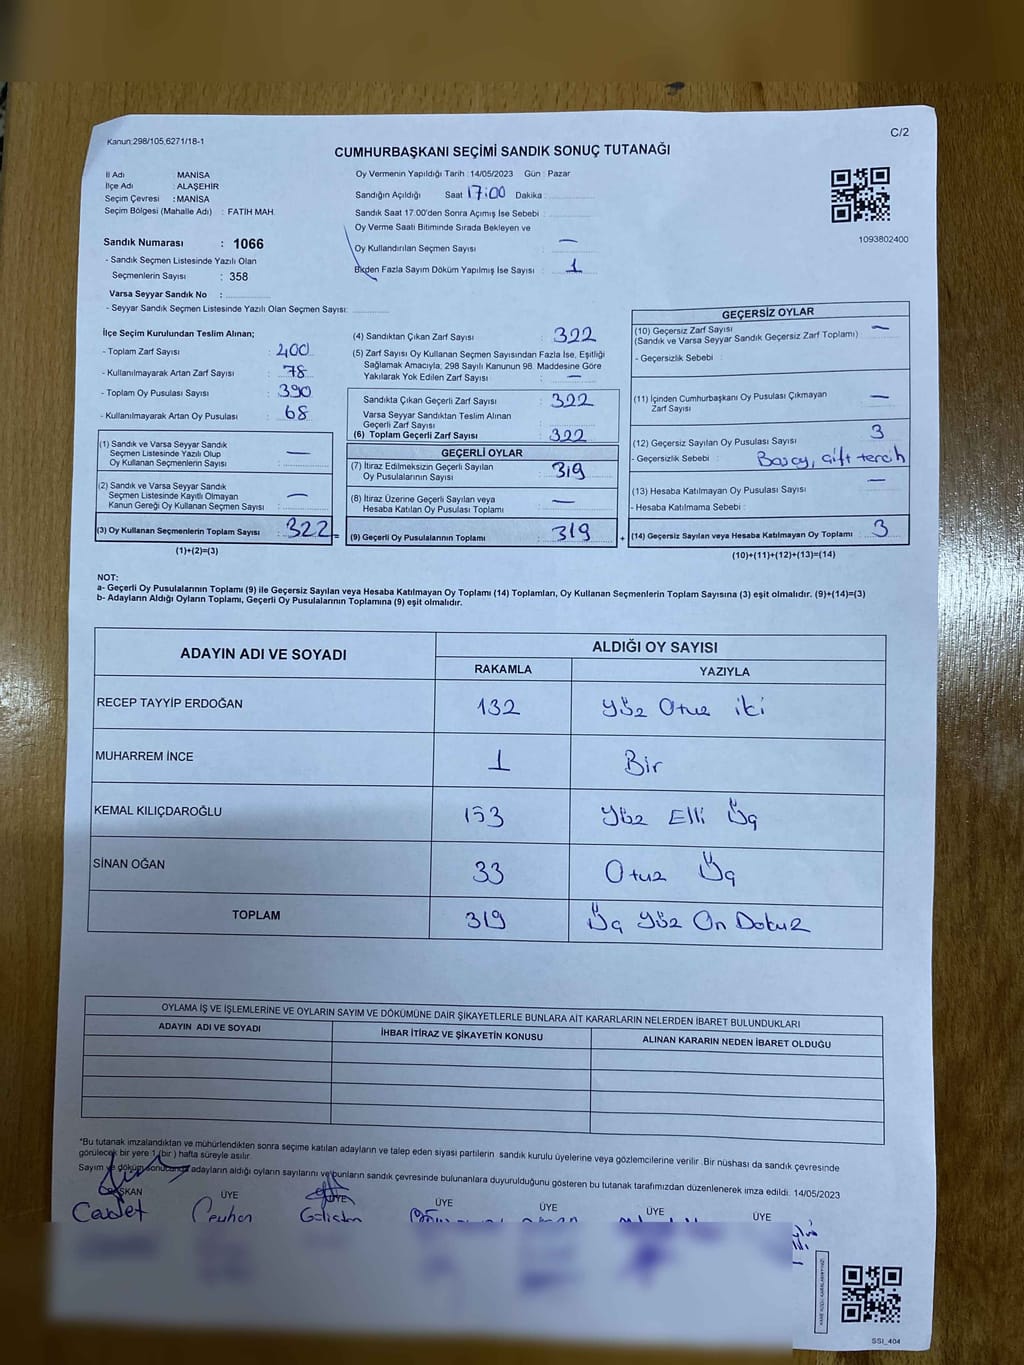 Kanun:298/105,6271/18-1
C/2
CUMHURBAŞKANI SEÇİMİ SANDIK SONUÇ TUTANAĞI
İl Adı : MANİSA
İlçe Adı : ALAŞEHİR
Seçim Çevresi : MANİSA
Seçim Bölgesi (Mahalle Adı) : FATİH MAH.
Sandık Numarası : 1066
- Sandık Seçmen Listesinde Yazılı Olan
Seçmenlerin Sayısı : 358
Varsa Seyyar Sandık No :
- Seyyar Sandık Seçmen Listesinde Yazılı Olan Seçmen Sayısı:
Oy Vermenin Yapıldığı Tarih :14/05/2023 Gün : Pazar
Sandığın Açıldığı Saat 17:00 Dakika :
Sandık Saat 17:00'den Sonra Açımış İse Sebebi :
Oy Verme Saati Bitiminde Sırada Bekleyen ve
Oy Kullandırılan Seçmen Sayısı : —
Birden Fazla Sayım Döküm Yapılmış İse Sayısı : 1
1093802400
İlçe Seçim Kurulundan Teslim Alınan;
- Toplam Zarf Sayısı : 400
- Kullanılmayarak Artan Zarf Sayısı : 78
- Toplam Oy Pusulası Sayısı : 390
- Kullanılmayarak Artan Oy Pusulası : 68
(1) Sandık ve Varsa Seyyar Sandık
Seçmen Listesinde Yazılı Olup
Oy Kullanan Seçmenlerin Sayısı : —
(2) Sandık ve Varsa Seyyar Sandık
Seçmen Listesinde Kayıtlı Olmayan
Kanun Gereği Oy Kullanan Seçmen Sayısı : —
(3) Oy Kullanan Seçmenlerin Toplam Sayısı : 322 =
(1)+(2)=(3)
(4) Sandıktan Çıkan Zarf Sayısı : 322
(5) Zarf Sayısı Oy Kullanan Seçmen Sayısından Fazla İse, Eşitliği
Sağlamak Amacıyla, 298 Sayılı Kanunun 98. Maddesine Göre
Yakılarak Yok Edilen Zarf Sayısı : —
Sandıkta Çıkan Geçerli Zarf Sayısı : 322
Varsa Seyyar Sandıktan Teslim Alınan
Geçerli Zarf Sayısı :
(6) Toplam Geçerli Zarf Sayısı : 322
GEÇERLİ OYLAR
(7) İtiraz Edilmeksizin Geçerli Sayılan
Oy Pusulalarının Sayısı : 319
(8) İtiraz Üzerine Geçerli Sayılan veya
Hesaba Katılan Oy Pusulası Toplamı : —
(9) Geçerli Oy Pusulalarının Toplamı : 319 +
GEÇERSİZ OYLAR
(10) Geçersiz Zarf Sayısı : —
(Sandık ve Varsa Seyyar Sandık Geçersiz Zarf Toplamı)
- Geçersizlik Sebebi :
(11) İçinden Cumhurbaşkanı Oy Pusulası Çıkmayan
Zarf Sayısı : —
(12) Geçersiz Sayılan Oy Pusulası Sayısı : 3
- Geçersizlik Sebebi : çift tercih
(13) Hesaba Katılmayan Oy Pusulası Sayısı : —
- Hesaba Katılmama Sebebi :
(14) Geçersiz Sayılan veya Hesaba Katılmayan Oy Toplamı : 3
(10)+(11)+(12)+(13)=(14)
NOT:
a- Geçerli Oy Pusulalarının Toplamı (9) ile Geçersiz Sayılan veya Hesaba Katılmayan Oy Toplamı (14) Toplamları, Oy Kullanan Seçmenlerin Toplam Sayısına (3) eşit olmalıdır. (9)+(14)=(3)
b- Adayların Aldığı Oyların Toplamı, Geçerli Oy Pusulalarının Toplamına (9) eşit olmalıdır.
ADAYIN ADI VE SOYADI ALDIĞI OY SAYISI
RAKAMLA YAZIYLA
RECEP TAYYİP ERDOĞAN 132 Yüz Otuz iki
MUHARREM İNCE 1 Bir
KEMAL KILIÇDAROĞLU 153 Yüz Elli Üç
SİNAN OĞAN 33 Otuz Üç
TOPLAM 319 Üç Yüz On Dokuz
OYLAMA İŞ VE İŞLEMLERİNE VE OYLARIN SAYIM VE DÖKÜMÜNE DAİR ŞİKAYETLERLE BUNLARA AİT KARARLARIN NELERDEN İBARET BULUNDUKLARI
ADAYIN ADI VE SOYADI İHBAR İTİRAZ VE ŞİKAYETİN KONUSU ALINAN KARARIN NEDEN İBARET OLDUĞU
*Bu tutanak imzalandıktan ve mühürlendikten sonra seçime katılan adayların ve talep eden siyasi partilerin sandık kurulu üyelerine veya gözlemcilerine verilir .Bir nüshası da sandık çevresinde
görülecek bir yere 1 (bir ) hafta süreyle asılır.
Sayım ve döküm sonucunda adayların aldığı oyların sayılarını ve bunların sandık çevresinde bulunanlara duyurulduğunu gösteren bu tutanak tarafımızdan düzenlenerek imza edildi. 14/05/2023
BAŞKAN ÜYE ÜYE ÜYE ÜYE ÜYE ÜYE
Cevdet Ceyhan Gülistan
SSI_404